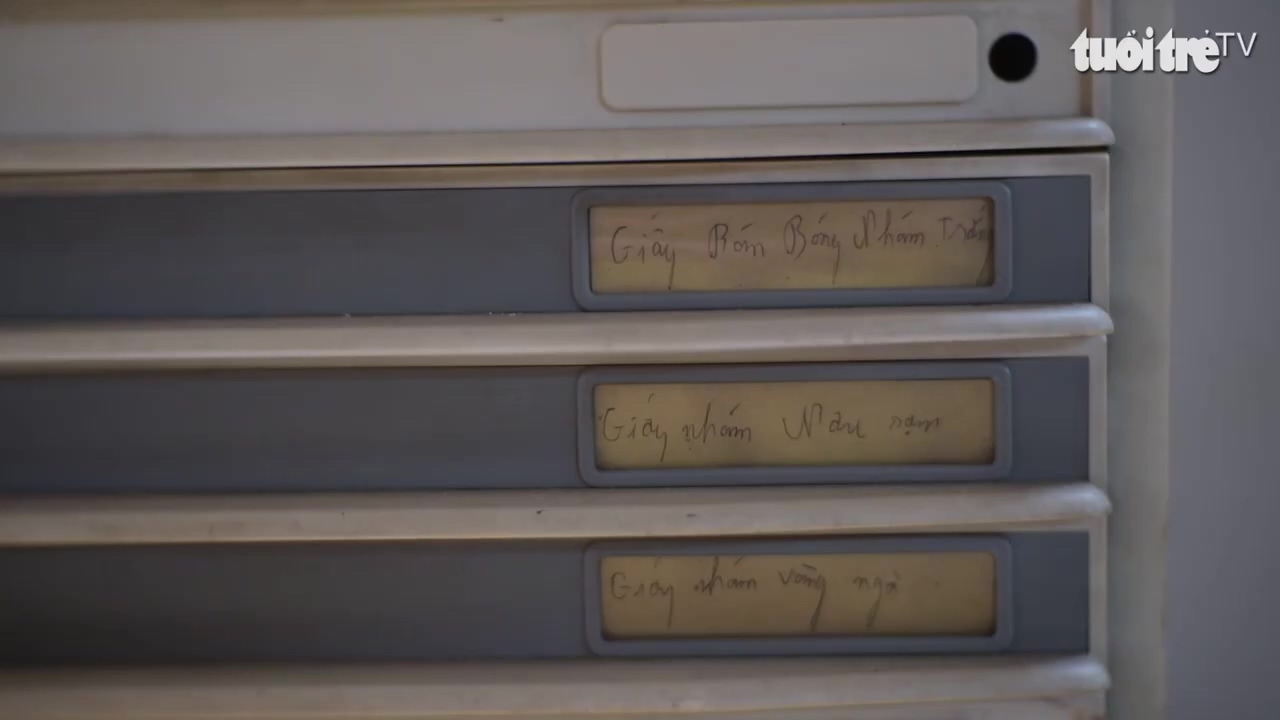 tuổi trẻ TV
Giấy Bóng Nhám Trắng
Giấy nhám Nâu sạm
Giấy nhám vàng ngà